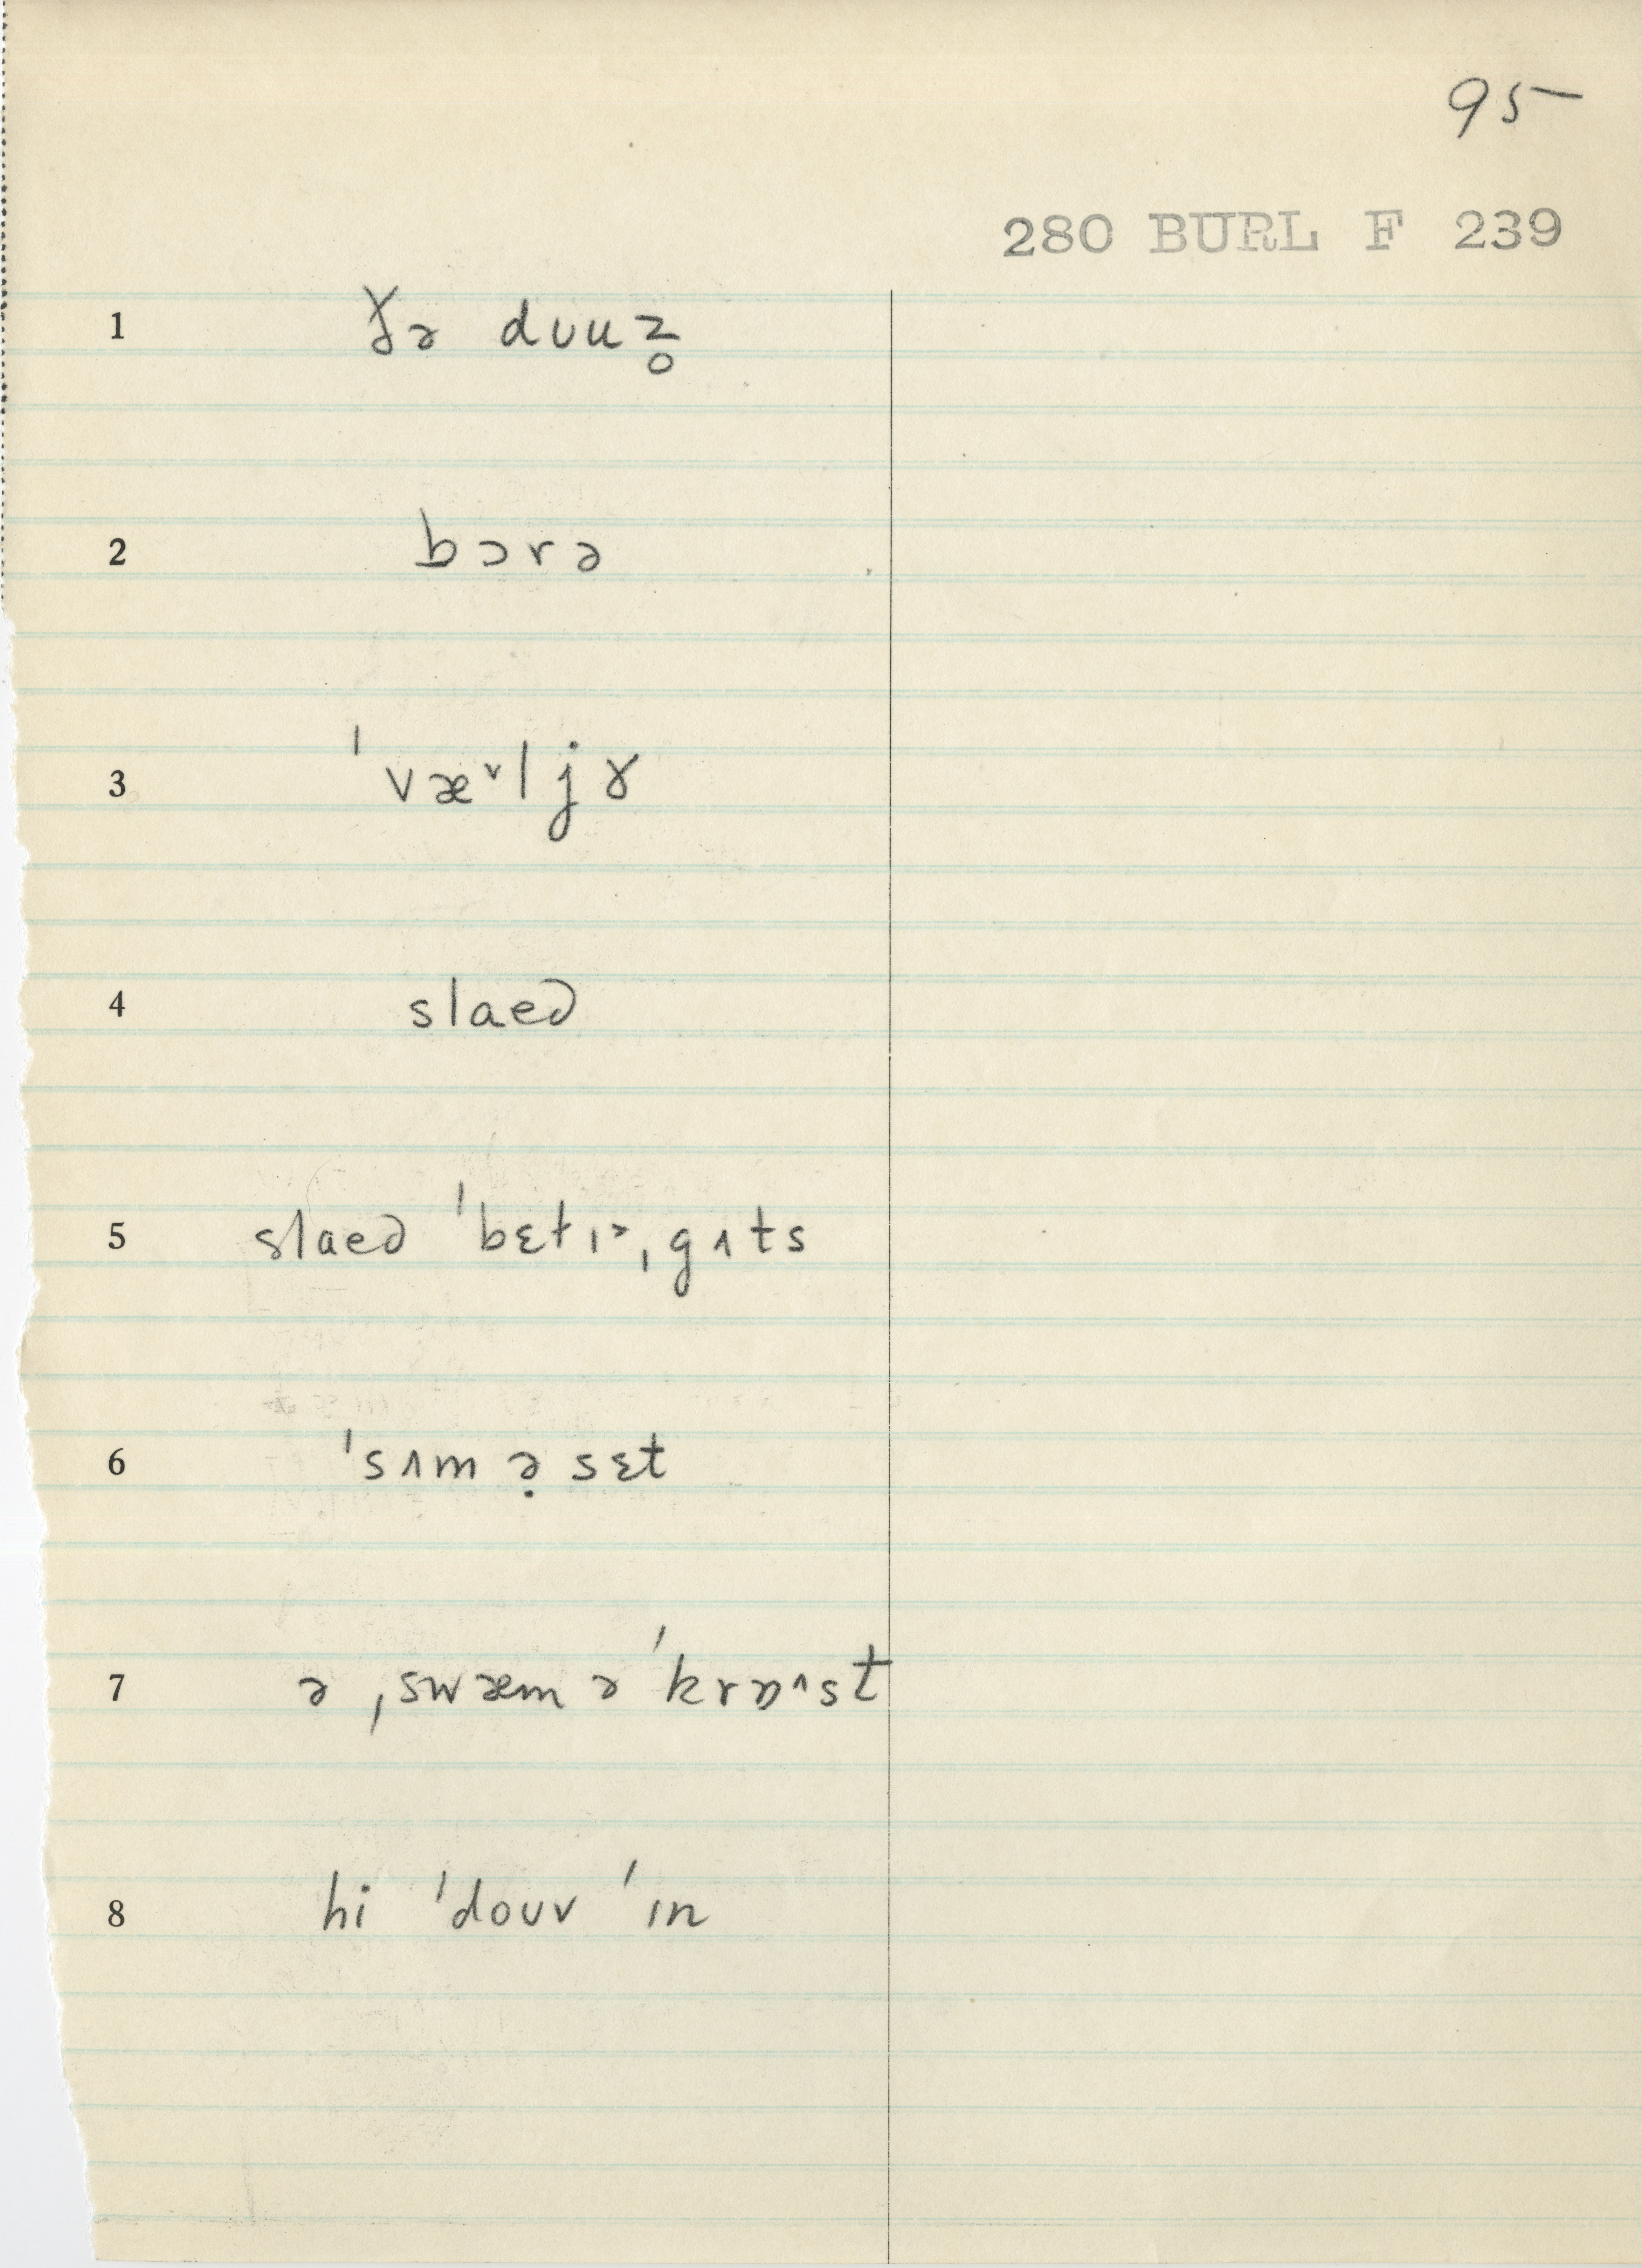 95
280 BURL F 239
1 ðə dʊuz̥
2 bɔrə
3 ˈvæᵛljɤ
4 slaeə
5 slaeə ˈbɛtɪɚˌgʌts
6 ˈsʌmə̣sɛt
7 ə ˌswæm ə ˈkrɒʌst
8 hi ˈdoʊv ˈɪn